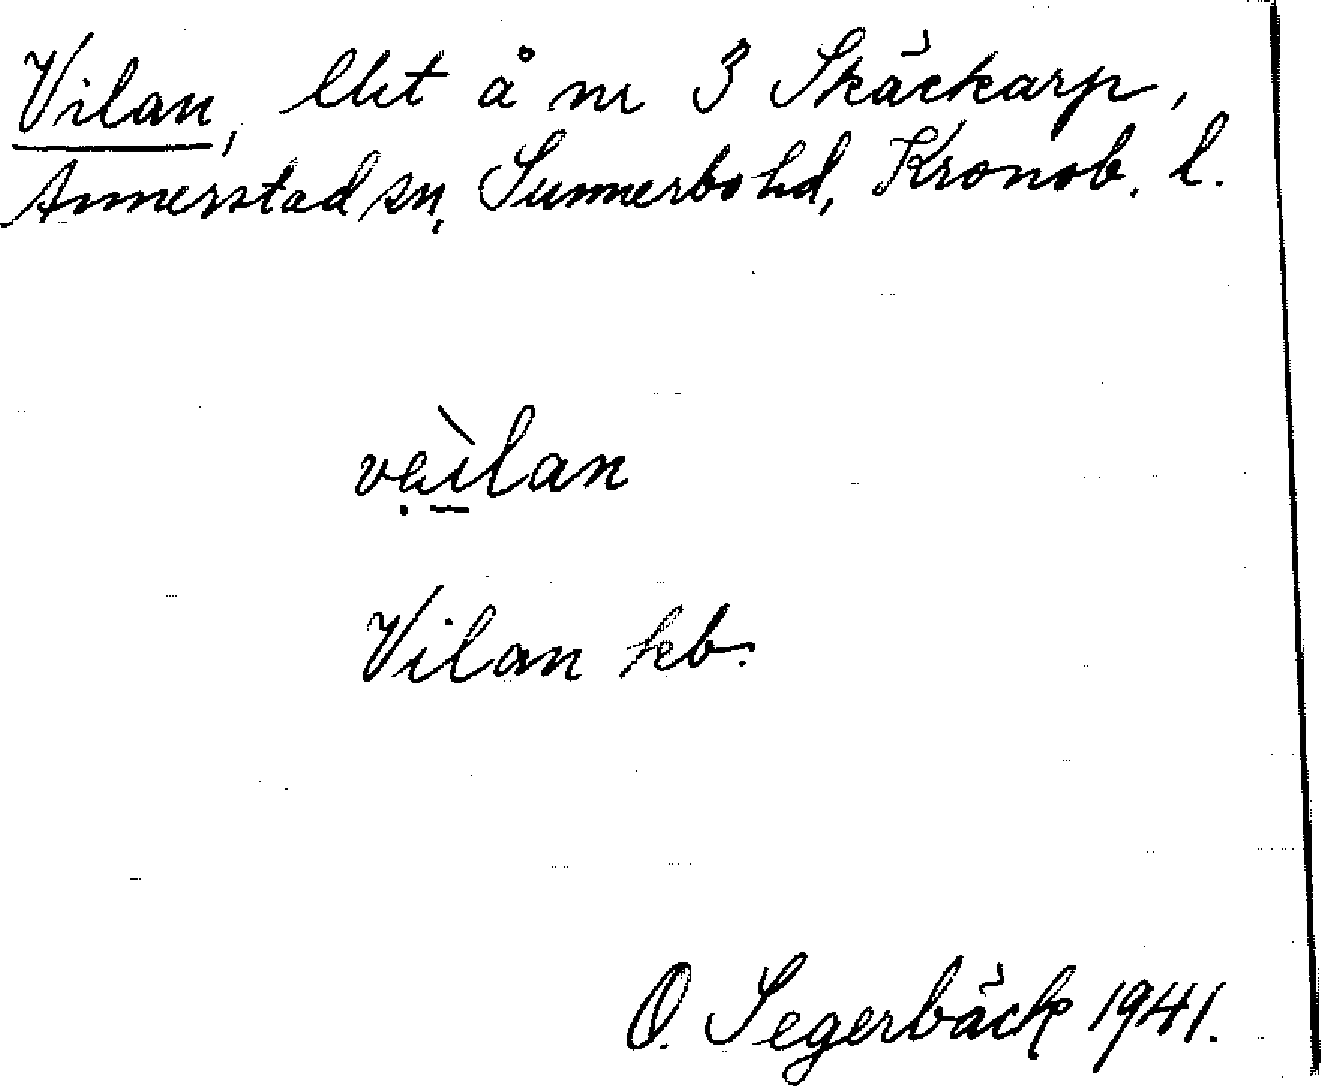 Vilan, lht å nr 3 Skäckarp,
Annerstad sn, Sunnerbo hd, Kronob. l.
veìlan
Vilan kb.
O. Segerbäck 1941.